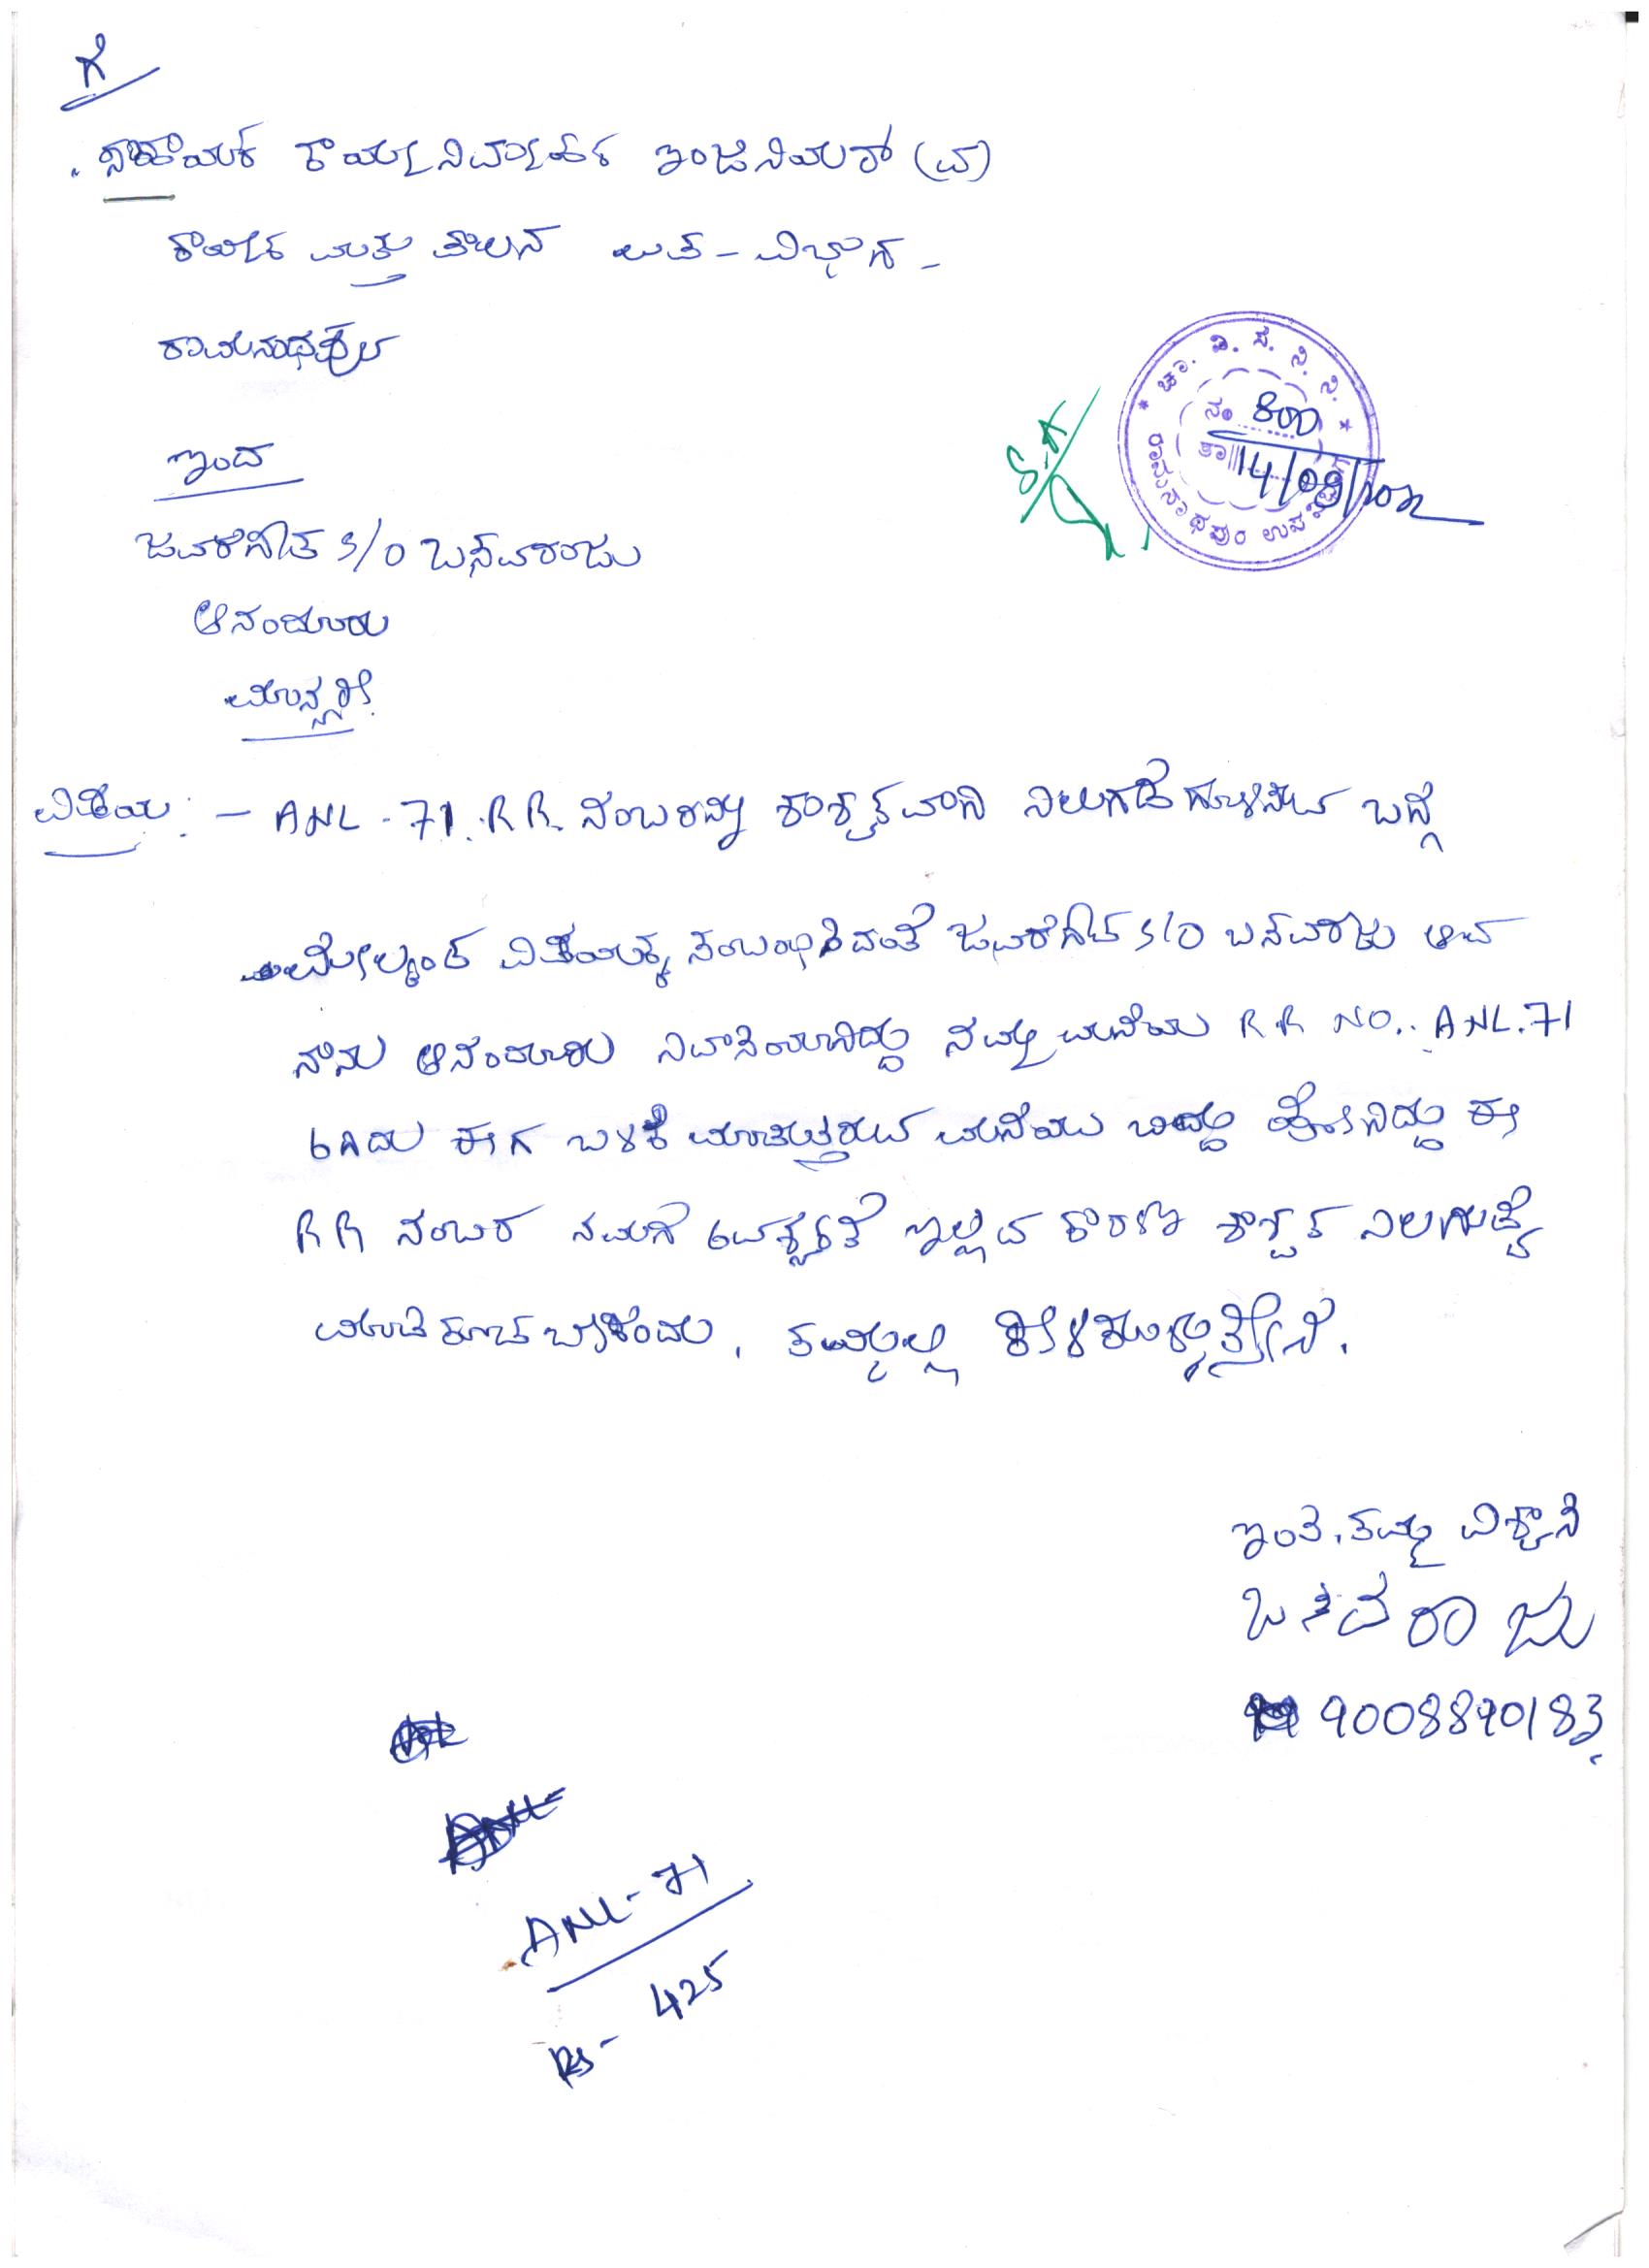 ಗೆ
ಸಹಾಯಕ ಕಾರ್ಯನಿರ್ವಾಹಕ ಇಂಜಿನಿಯರ್ (ವಿ)
ಕಾರ್ಯ ಮತ್ತು ಪಾಲನ ಉಪ-ವಿಭಾಗ-
ರಾಮನಾಥಪುರ
ಚಾ. ವಿ. ಸ. ನಿ. ನಿ.
ನಂ 800
ತಾ 14/09/2022
ರಾಮನಾಥಪುರಂ ಉಪವಿಭಾಗ
ಇಂದ
ಜವರೇಗೌಡ S/O ಬಸವರಾಜು
ಆನಂದೂರು
ವಿಷಯ: - ANL-71. R.R. ನಂಬರನ್ನು ಶಾಶ್ವತವಾಗಿ ನಿಲುಗಡೆಗೊಳಿಸುವ ಬಗ್ಗೆ
ಮೇಲ್ಕಂಡ ವಿಷಯಕ್ಕೆ ಸಂಬಂಧಿಸಿದಂತೆ ಜವರೇಗೌಡ S/O ಬಸವರಾಜು ಆದ
ನಾನು ಆನಂದೂರು ನಿವಾಸಿಯಾಗಿದ್ದು ನಮ್ಮ ಮನೆಯ R.R NO.. ANL.71
ಆಗಿದು ಈಗ ಬಳಕೆ ಮಾಡುತ್ತಿರುವ ಮನೆಯು ಬಿದ್ದು ಹೋಗಿದ್ದು ಈ
RR ನಂಬರ ನಮಗೆ ಅವಶ್ಯಕತೆ ಇಲ್ಲದ ಕಾರಣ ಶಾಶ್ವತ ನಿಲುಗಡೆ
ಮಾಡಿಕೊಡಬೇಕೆಂದು, ತಮ್ಮಲ್ಲಿ ಕೇಳಿಕೊಳ್ಳುತ್ತೇನೆ.
ಇಂತಿ, ತಮ್ಮ ವಿಶ್ವಾಸಿ
ಬಸವರಾಜು
9008890183
ANL-71
Rs- 425